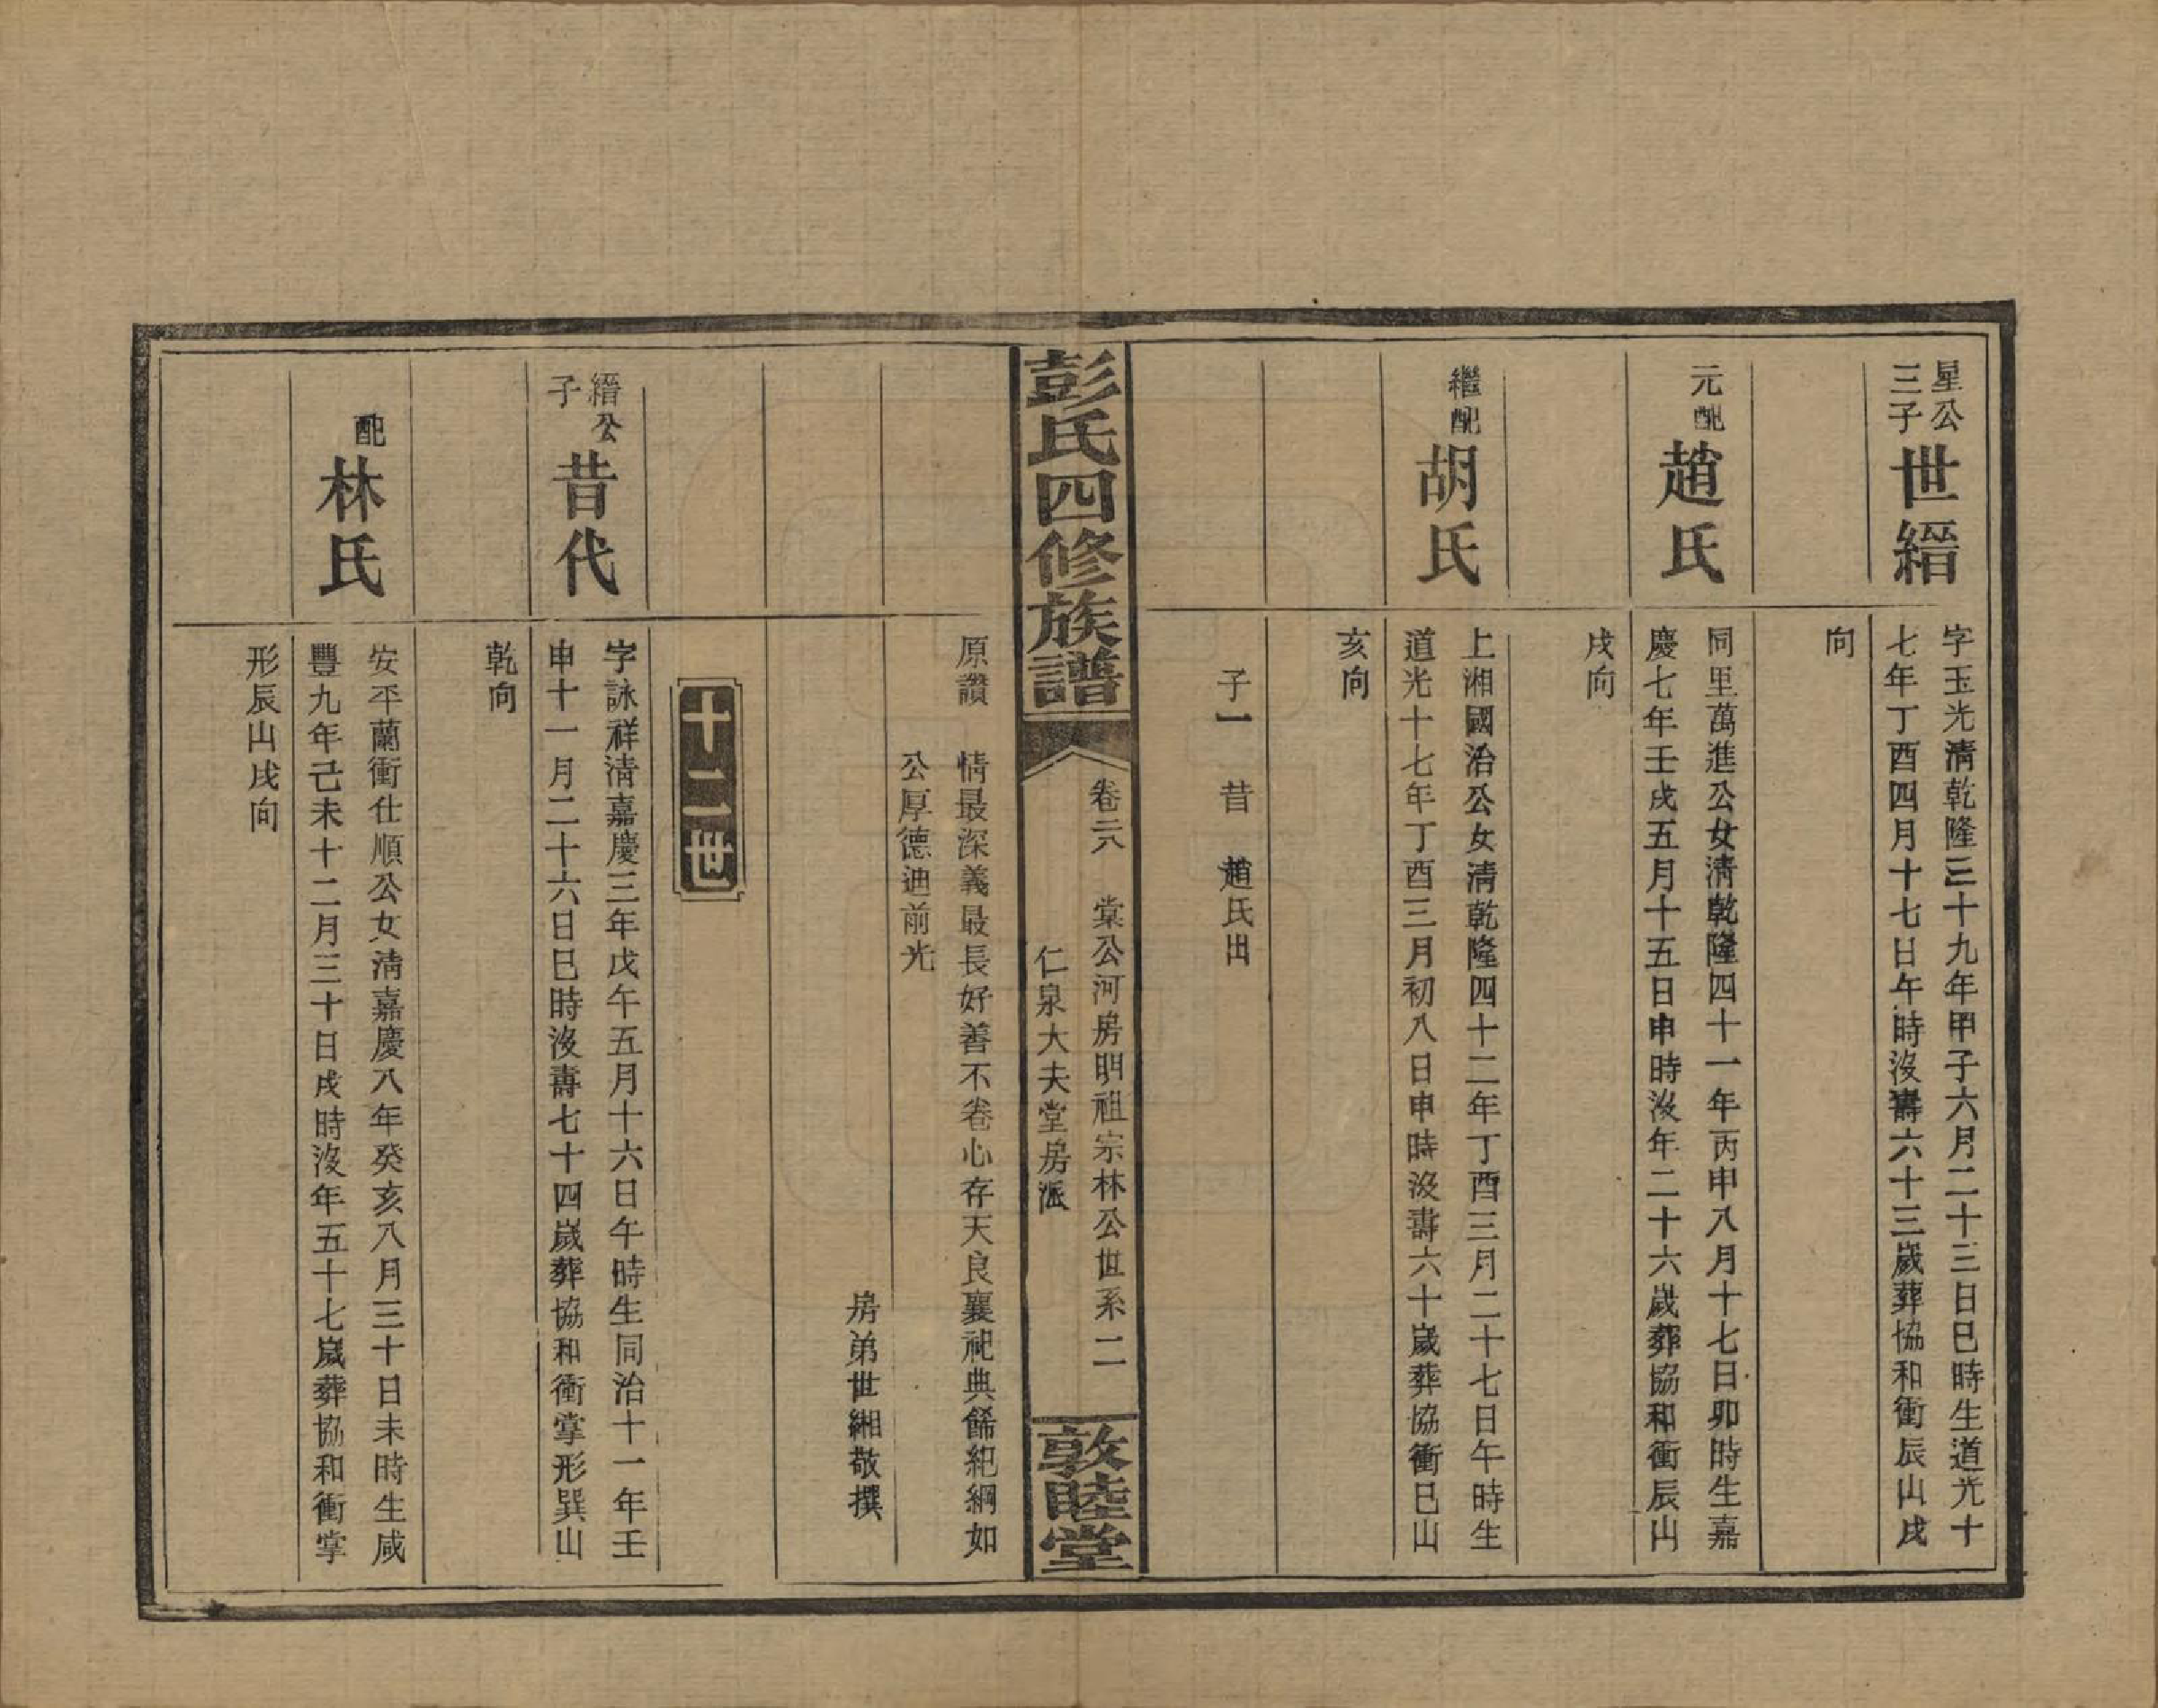 星公
三子
世縉
字玉光清乾隆三十九年甲子六月二十三日巳時生道光十
七年丁酉四月十七日午時沒壽六十三歲葬協和衝辰山戌
向
元配
趙氏
同里萬進公女清乾隆四十一年丙申八月十七日卯時生嘉
慶七年壬戌五月十五日申時沒年二十六歲葬協和衝辰山
戌向
繼配
胡氏
上湘國治公女清乾隆四十二年丁酉三月二十七日午時生
道光十七年丁酉三月初八日申時沒壽六十歲葬協衝巳山
亥向
子一 昔 趙氏出
彭氏四修族譜
卷二六 棠公河房明祖宗林公世系二
仁泉大夫堂房派
敦睦堂
原讚 情最深義最長好善不卷心存天良襄祀典餙紀綱如
公厚德迪前光
房弟世緗敬撰
十二世
縉公
子
昔代
字詠祥清嘉慶三年戊午五月十六日午時生同治十一年壬
申十一月二十六日巳時沒壽七十四歲葬協和衝掌形巽山
乾向
配
林氏
安平蘭衝仕順公女清嘉慶八年癸亥八月三十日未時生咸
豐九年己未十二月三十日戌時沒年五十七歲葬協和衝掌
形辰山戌向